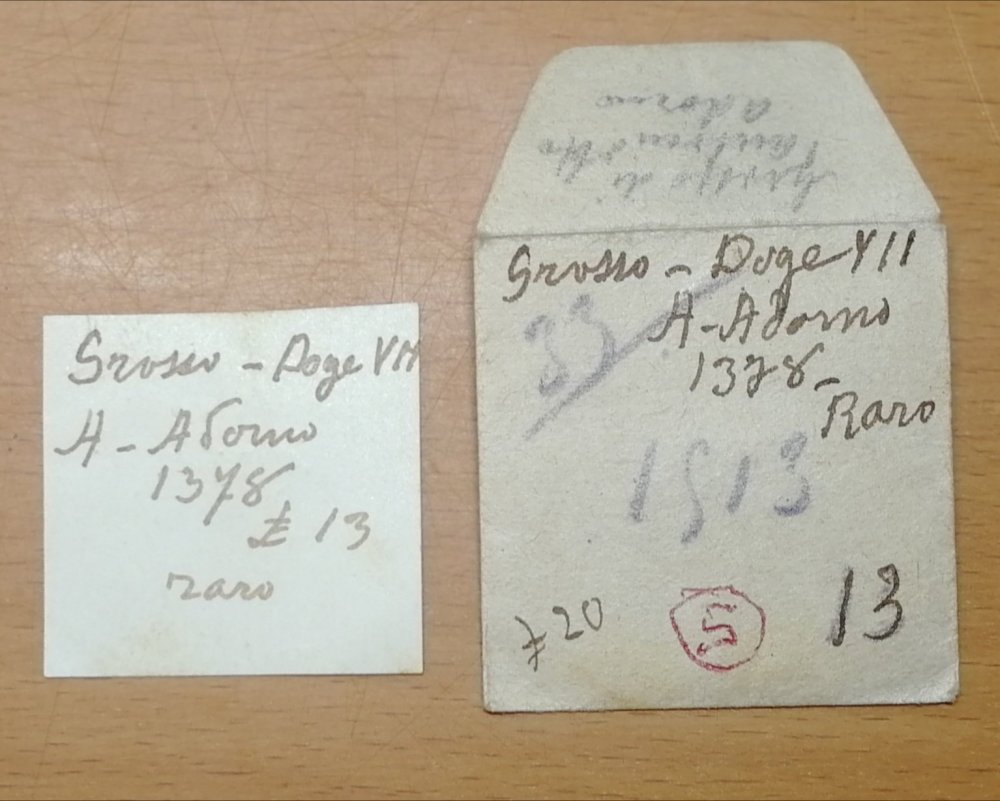 Grosso - Doge VII
A - Adorno
1378
£ 13
raro
Adorno
Grosso di
Grosso - Doge VII
33
A - Adorno
1378 -
Raro
1513
£ 20
5
13